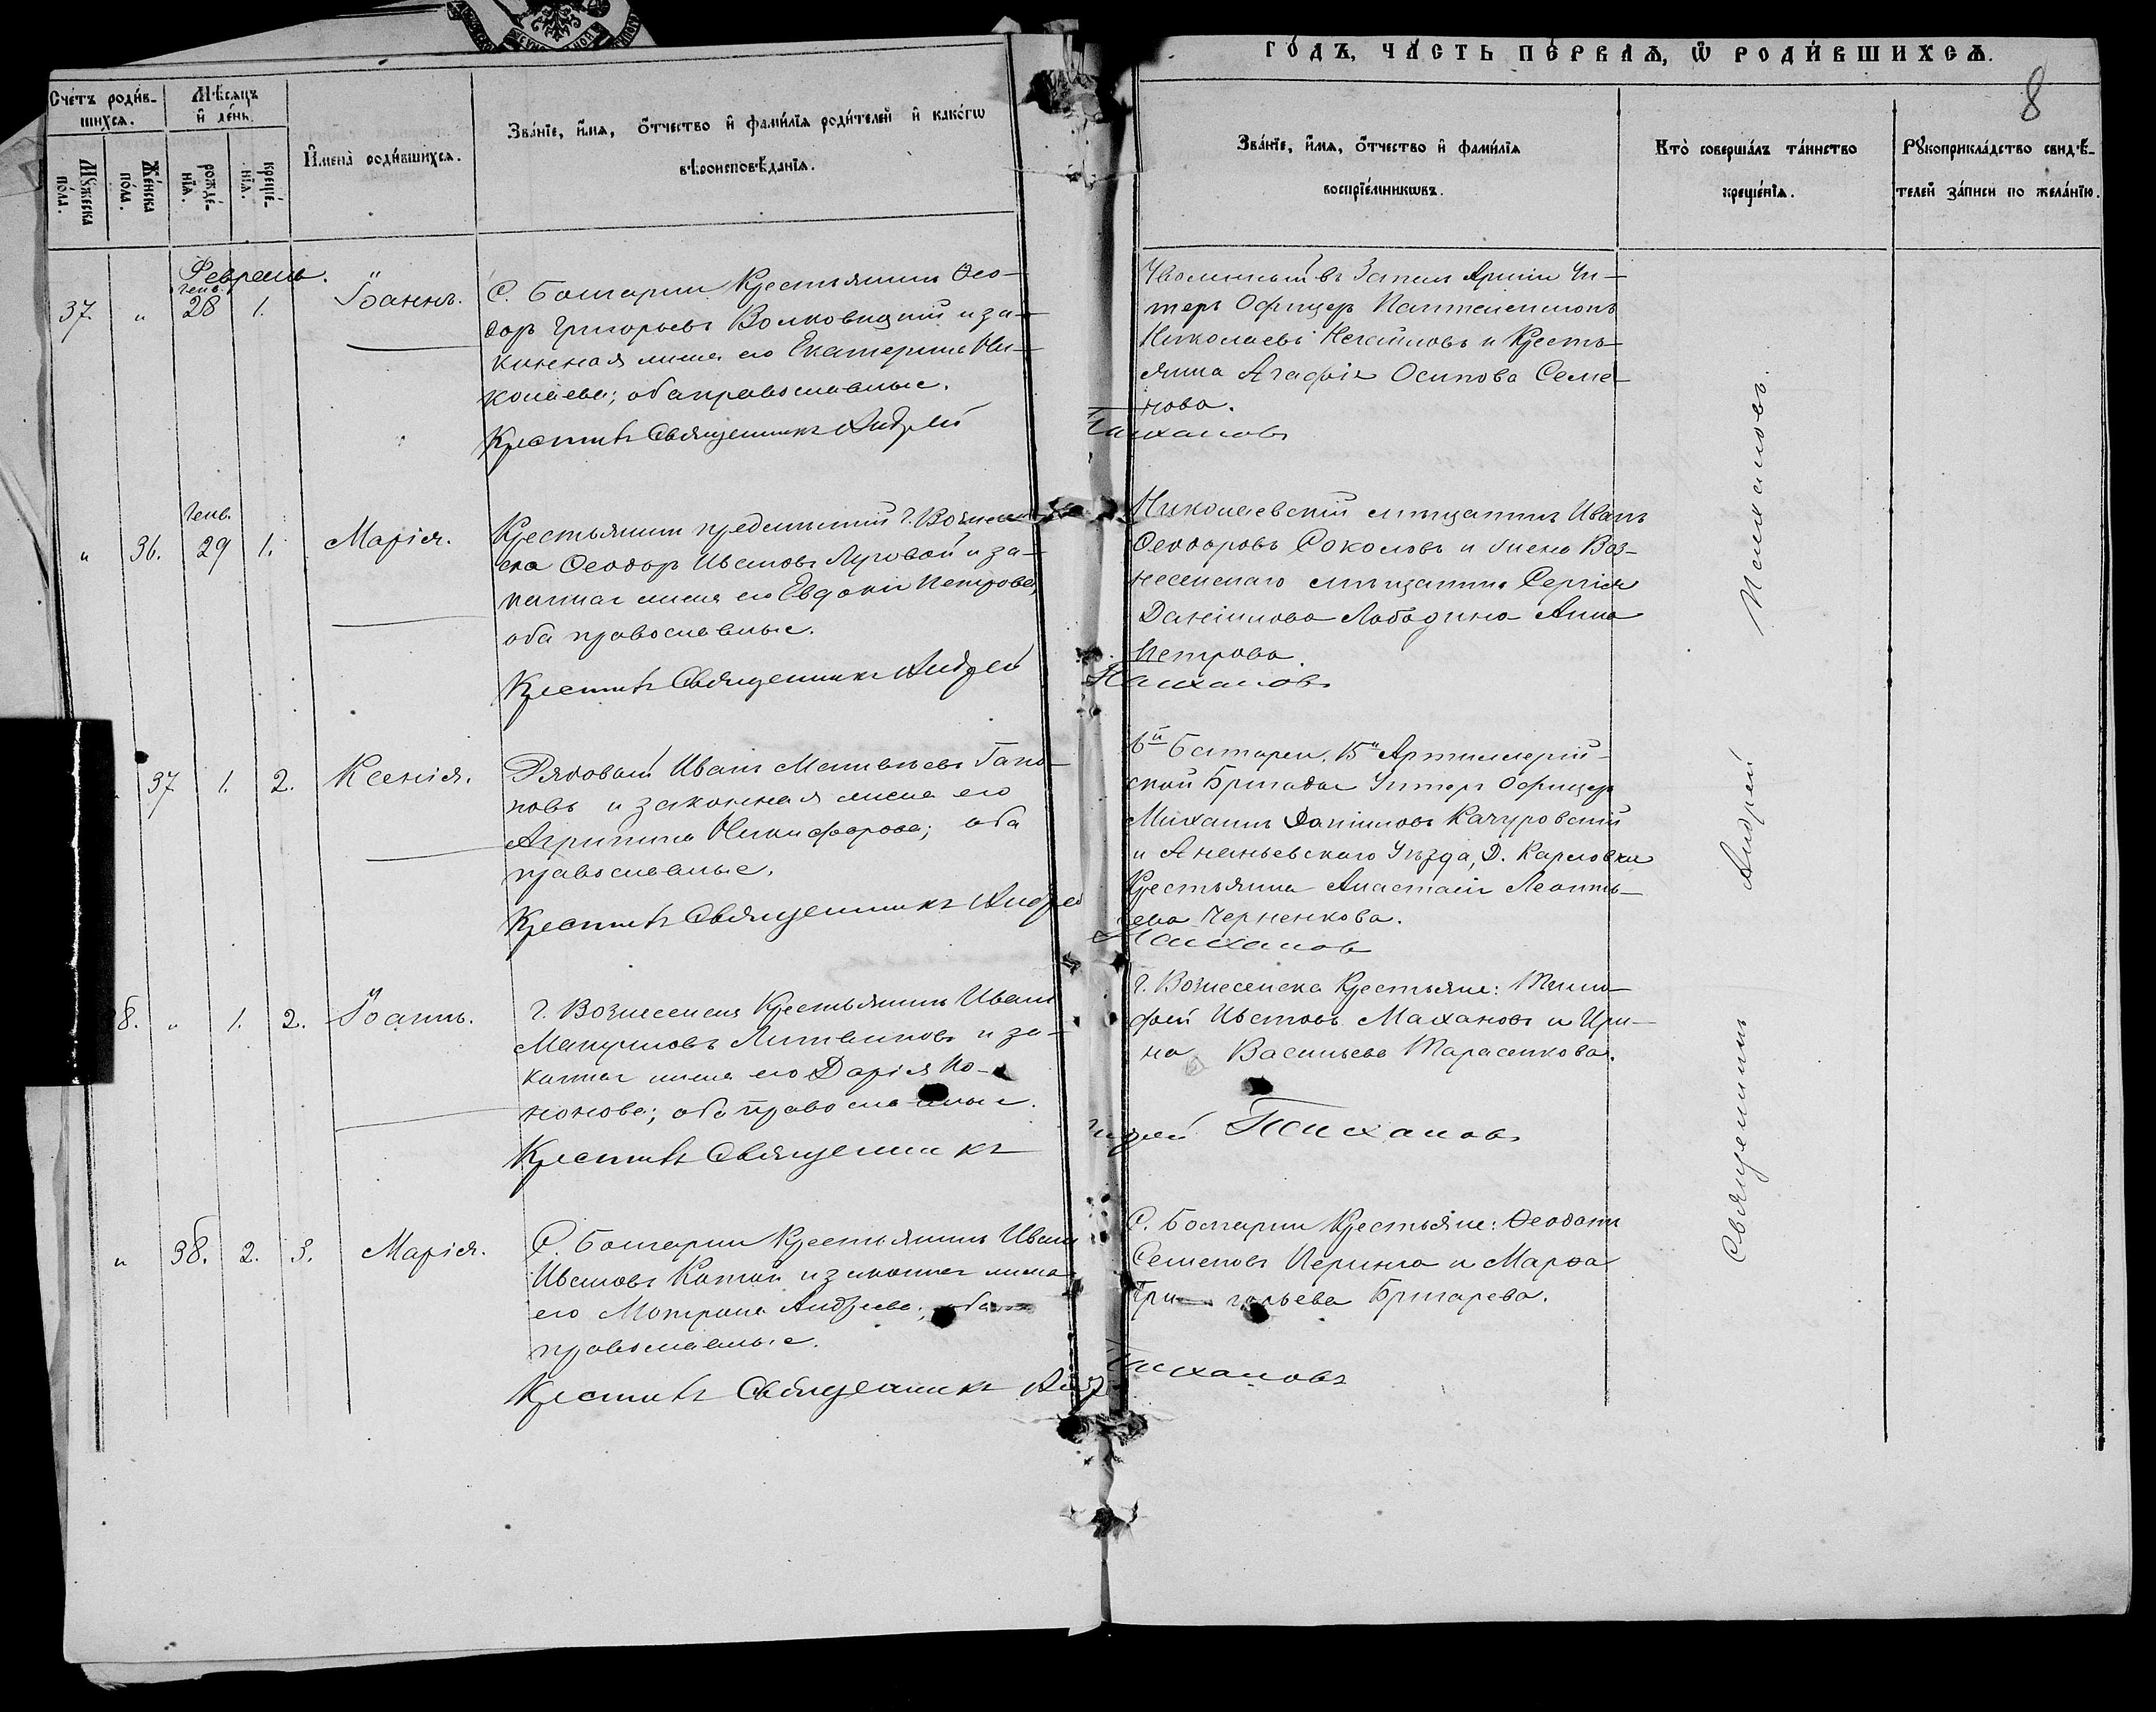 годъ, часть первая, ѡ родившихся.
8
Счетъ родив-
шихся.
Мѣсяцъ
и день.
Мужеска
пола.
Женска
пола.
рожде-
нія.
креще-
нія.
Имена родившихся.
Званіе, имя, отчество и фамилія родителей и какогѡ
вѣроисповѣданія.
Званіе, имя, отчество и фамилія
воспріемникѡвъ.
Кто совершалъ таинство
крещенія.
Рукоприкладство свидѣ-
телей записи по желанію.
Февраль.
Генв.
37. " 28 1. Іоаннъ.
С. Болгарии Крестьянинъ Ѳео-
доръ Григорьевъ Волковицкій и за-
конная жена его Екатерина Ни-
колаева; оба православные.
Крестилъ Священникъ Андрей
Уволенный въ Запасъ Арміи Ун-
теръ Офицеръ Пантелеимонъ
Николаевъ и Кресть-
янка Агафія Осипова Семе-
нова.
Паихановъ
Генв.
" 36. 29 1. Марія.
Крестьянинъ предмѣстій г. Вознесен-
ска Ѳеодоръ Ивановъ Луговой и за-
конная жена его Евдокія Петрова,
оба православные.
Крестилъ Священникъ Андрей
Николаевскій мѣщанинъ Иванъ
Ѳеодоровъ Соколовъ и жена Воз-
несенскаго мѣщанина Сергія
Даніилова Лободина Анна
Петрова.
Паихановъ
37 1. 2. Ксенія.
Рядовой Иванъ Матвѣевъ Гапо-
новъ и законная жена его
Агрипина Никифорова; оба
православные.
Крестилъ Священникъ Андрей
6й Батареи, 15й Артиллерій-
ской Бригады Унтеръ Офицеръ
Михаилъ Даніиловъ Качуровскій
и Ананьевскаго Уѣзда, Д. Карловки
Крестьянка Анастасія Леонть-
ева Черненкова.
Паихановъ
8. " 1. 2. Іоаннъ.
г. Вознесенска Крестьянинъ Иванъ
Литвиновъ и за-
конная жена его Дарія Ко-
нонова; оба православные.
Крестилъ Священникъ
г. Вознесенска Крестьяне: Тимо-
фей Ивановъ Махановъ и Ири-
на Васильева Тарасенкова.
Андрей Паихановъ
" 38. 2. 3. Марія.
С. Болгарии Крестьянинъ Иванъ
Ивановъ и законная жена
его Мотрона Андреева; оба
православные.
Крестилъ Священникъ Андрей
С. Болгарии Крестьяне: Ѳеодотъ
Семеновъ Перина и Марѳа
Григорьева Бригарева.
Паихановъ
Священникъ Андрей Паихановъ.